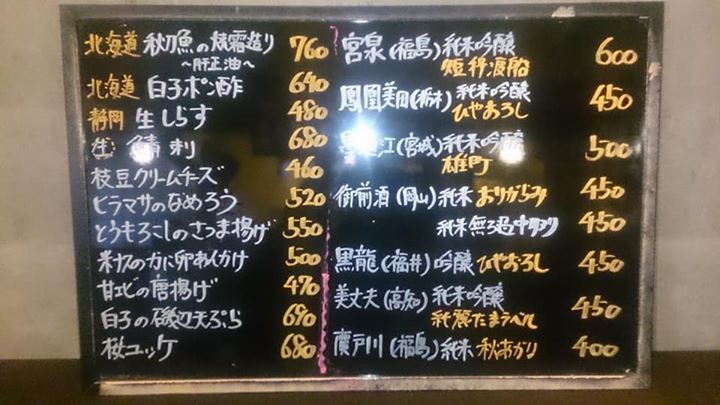 北海道 秋刀魚の焼霜造り 760
〜肝正油〜
北海道 白子ポン酢 640
静岡 生しらす 480
生 鯖刺 680
枝豆クリームチーズ 460
ヒラマサのなめろう 520
とうもろこしのさつま揚げ 550
米ナスのカニ卵あんかけ 500
甘エビの唐揚げ 470
白子の磯辺天ぷら 690
桜ユッケ 680
宮泉(福島)純米吟醸 600
短稈渡船
鳳凰美田(栃木)純米吟醸 450
ひやおろし
江(宮城)純米吟醸 500
雄町
御前酒(岡山)純米 おりがらみ 450
純米 無ろ過中取り 450
黒龍(福井)吟醸 ひやおろし 450
美丈夫(高知)純米吟醸 450
純麗たまラベル
廣戸川(福島)純米 秋あがり 400